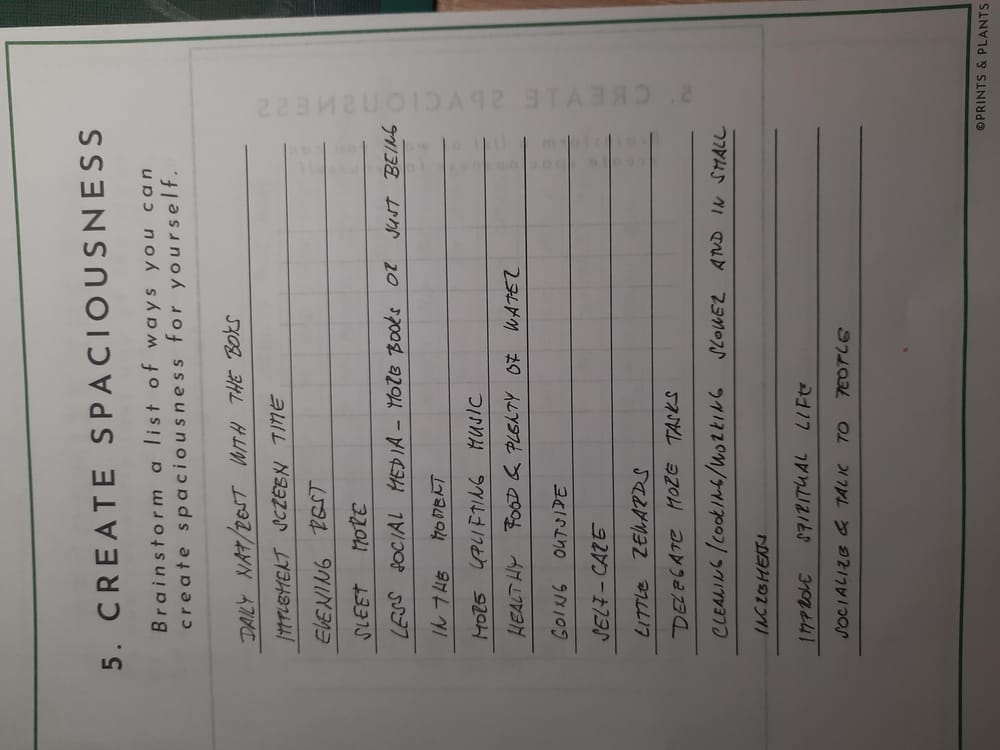 5. CREATE SPACIOUSNESS
Brainstorm a list of ways you can
create spaciousness for yourself.
DAILY NAP/REST WITH THE BOYS
IMPLEMENT SCREEN TIME
EVENING REST
SLEEP MORE
LESS SOCIAL MEDIA - MORE BOOKS OR JUST BEING
IN THE MOMENT
MORE UPLIFTING MUSIC
HEALTHY FOOD & PLENTY OF WATER
GOING OUTSIDE
SELF-CARE
LITTLE REWARDS
DELEGATE MORE TASKS
CLEANING/COOKING/WORKING SLOWER AND IN SMALL
INCREMENTS
IMPROVE SPIRITUAL LIFE
SOCIALIZE & TALK TO PEOPLE
©PRINTS & PLANTS